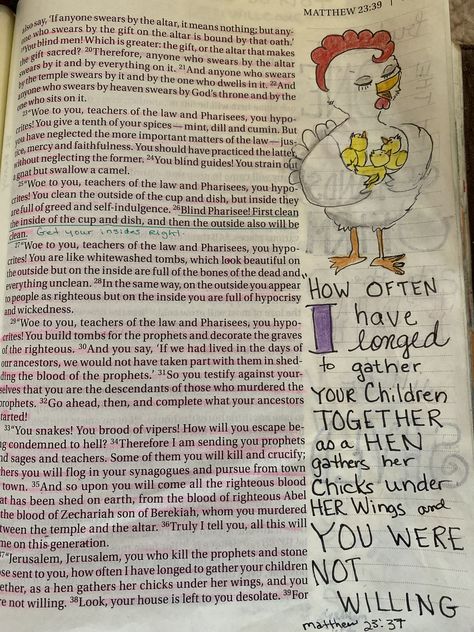 MATTHEW 23:39
also say, 'If anyone swears by the altar, it means nothing; but any-
one who swears by the gift on the altar is bound by that oath.'
"You blind men! Which is greater: the gift, or the altar that makes
the gift sacred? 20Therefore, anyone who swears by the altar
swears by it and by everything on it. 21And anyone who swears
by the temple swears by it and by the one who dwells in it. 22And
anyone who swears by heaven swears by God's throne and by the
one who sits on it.
23"Woe to you, teachers of the law and Pharisees, you hypo-
crites! You give a tenth of your spices—mint, dill and cumin. But
you have neglected the more important matters of the law—jus-
tice, mercy and faithfulness. You should have practiced the latter,
without neglecting the former. 24You blind guides! You strain out
a gnat but swallow a camel.
25"Woe to you, teachers of the law and Pharisees, you hypo-
crites! You clean the outside of the cup and dish, but inside they
are full of greed and self-indulgence. 26Blind Pharisee! First clean
the inside of the cup and dish, and then the outside also will be
clean. Get your insides Right.
27"Woe to you, teachers of the law and Pharisees, you hypo-
crites! You are like whitewashed tombs, which look beautiful on
the outside but on the inside are full of the bones of the dead and
everything unclean. 28In the same way, on the outside you appear
to people as righteous but on the inside you are full of hypocrisy
and wickedness.
29"Woe to you, teachers of the law and Pharisees, you hypo-
crites! You build tombs for the prophets and decorate the graves
of the righteous. 30And you say, 'If we had lived in the days of
our ancestors, we would not have taken part with them in shed-
ding the blood of the prophets.' 31So you testify against your-
selves that you are the descendants of those who murdered the
prophets. 32Go ahead, then, and complete what your ancestors
started!
33"You snakes! You brood of vipers! How will you escape be-
ing condemned to hell? 34Therefore I am sending you prophets
and sages and teachers. Some of them you will kill and crucify;
others you will flog in your synagogues and pursue from town
town. 35And so upon you will come all the righteous blood
that has been shed on earth, from the blood of righteous Abel
the blood of Zechariah son of Berekiah, whom you murdered
between the temple and the altar. 36Truly I tell you, all this will
come on this generation.
37"Jerusalem, Jerusalem, you who kill the prophets and stone
those sent to you, how often I have longed to gather your children
together, as a hen gathers her chicks under her wings, and you
were not willing. 38Look, your house is left to you desolate. 39For
"HOW OFTEN
I have
longed
to gather
YOUR Children
TOGETHER
as a HEN
gathers her
Chicks under
HER Wings and
YOU WERE
NOT
WILLING
matthew 23:37